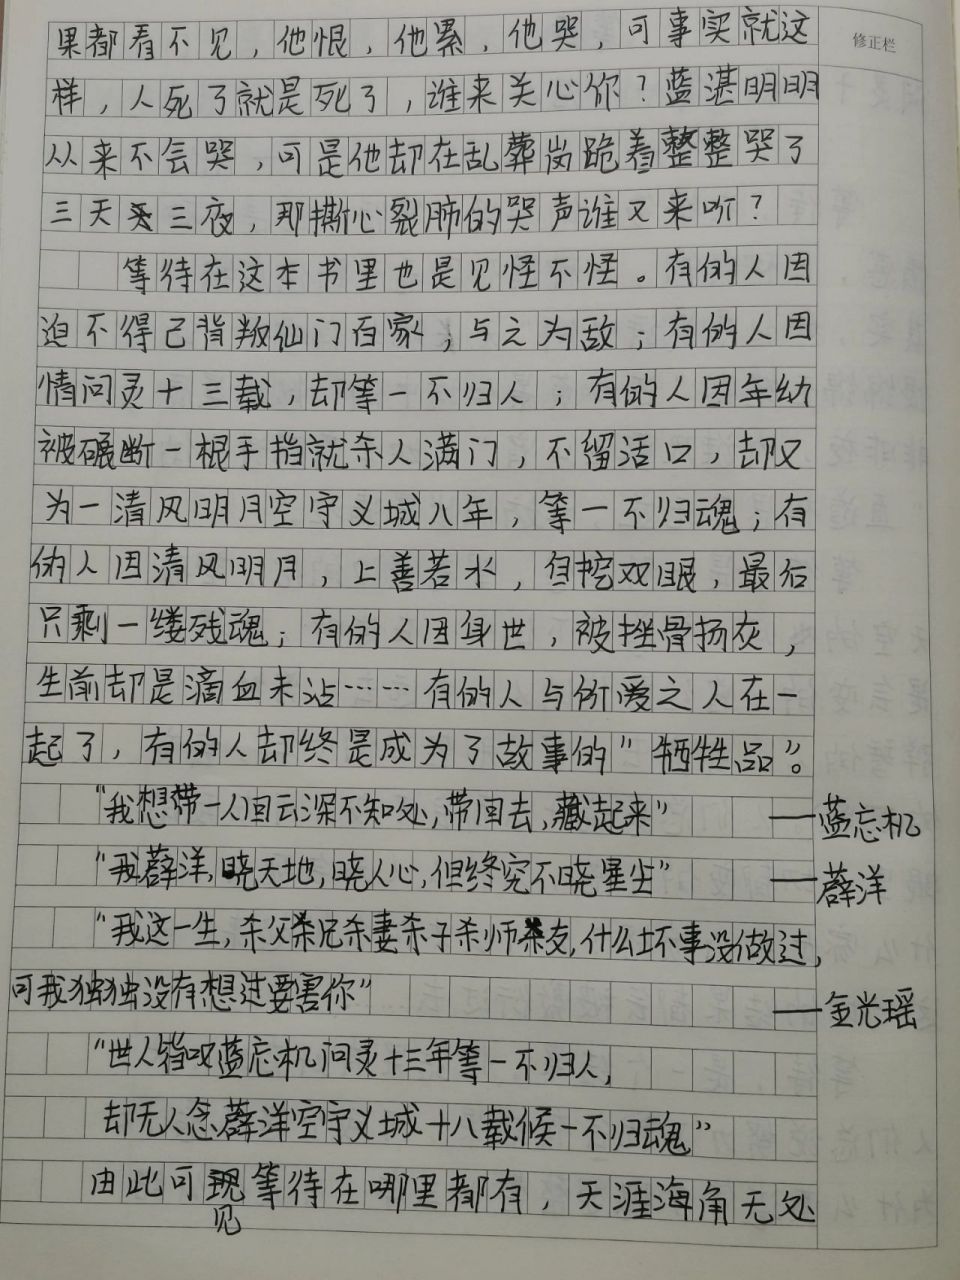 修正栏
果都看不见，他恨，他累，他哭，可事实就这
样，人死了就是死了，谁来关心你？蓝湛明明
从来不会哭，可是他却在乱葬岗跪着整整哭了
三天三夜，那撕心裂肺的哭声谁又来听？
等待在这本书里也是见怪不怪。有的人因
迫不得己背叛仙门百家，与之为敌；有的人因
情问灵十三载，却等一不归人；有的人因年幼
被碾断一根手指就杀人满门，不留活口，却又
为一清风明月空守义城八年，等一不归魂；有
的人因清风明月，上善若水，自挖双眼，最后
只剩一缕残魂；有的人因身世，被挫骨扬灰，
生前却是滴血未沾……有的人与所爱之人在一
起了，有的人却终是成为了故事的“牺牲品”。
“我想带一人回云深不知处，带回去，藏起来” ——蓝忘机
“我薛洋，晓天地，晓人心，但终究不晓星尘” ——薛洋
“我这一生，杀父杀兄杀妻杀子杀师杀友，什么坏事没做过，
可我独独没有想过要害你” ——金光瑶
“世人皆叹蓝忘机问灵十三年等一不归人，
却无人念薛洋空守义城十八载候一不归魂”
由此可见等待在哪里都有，天涯海角无处